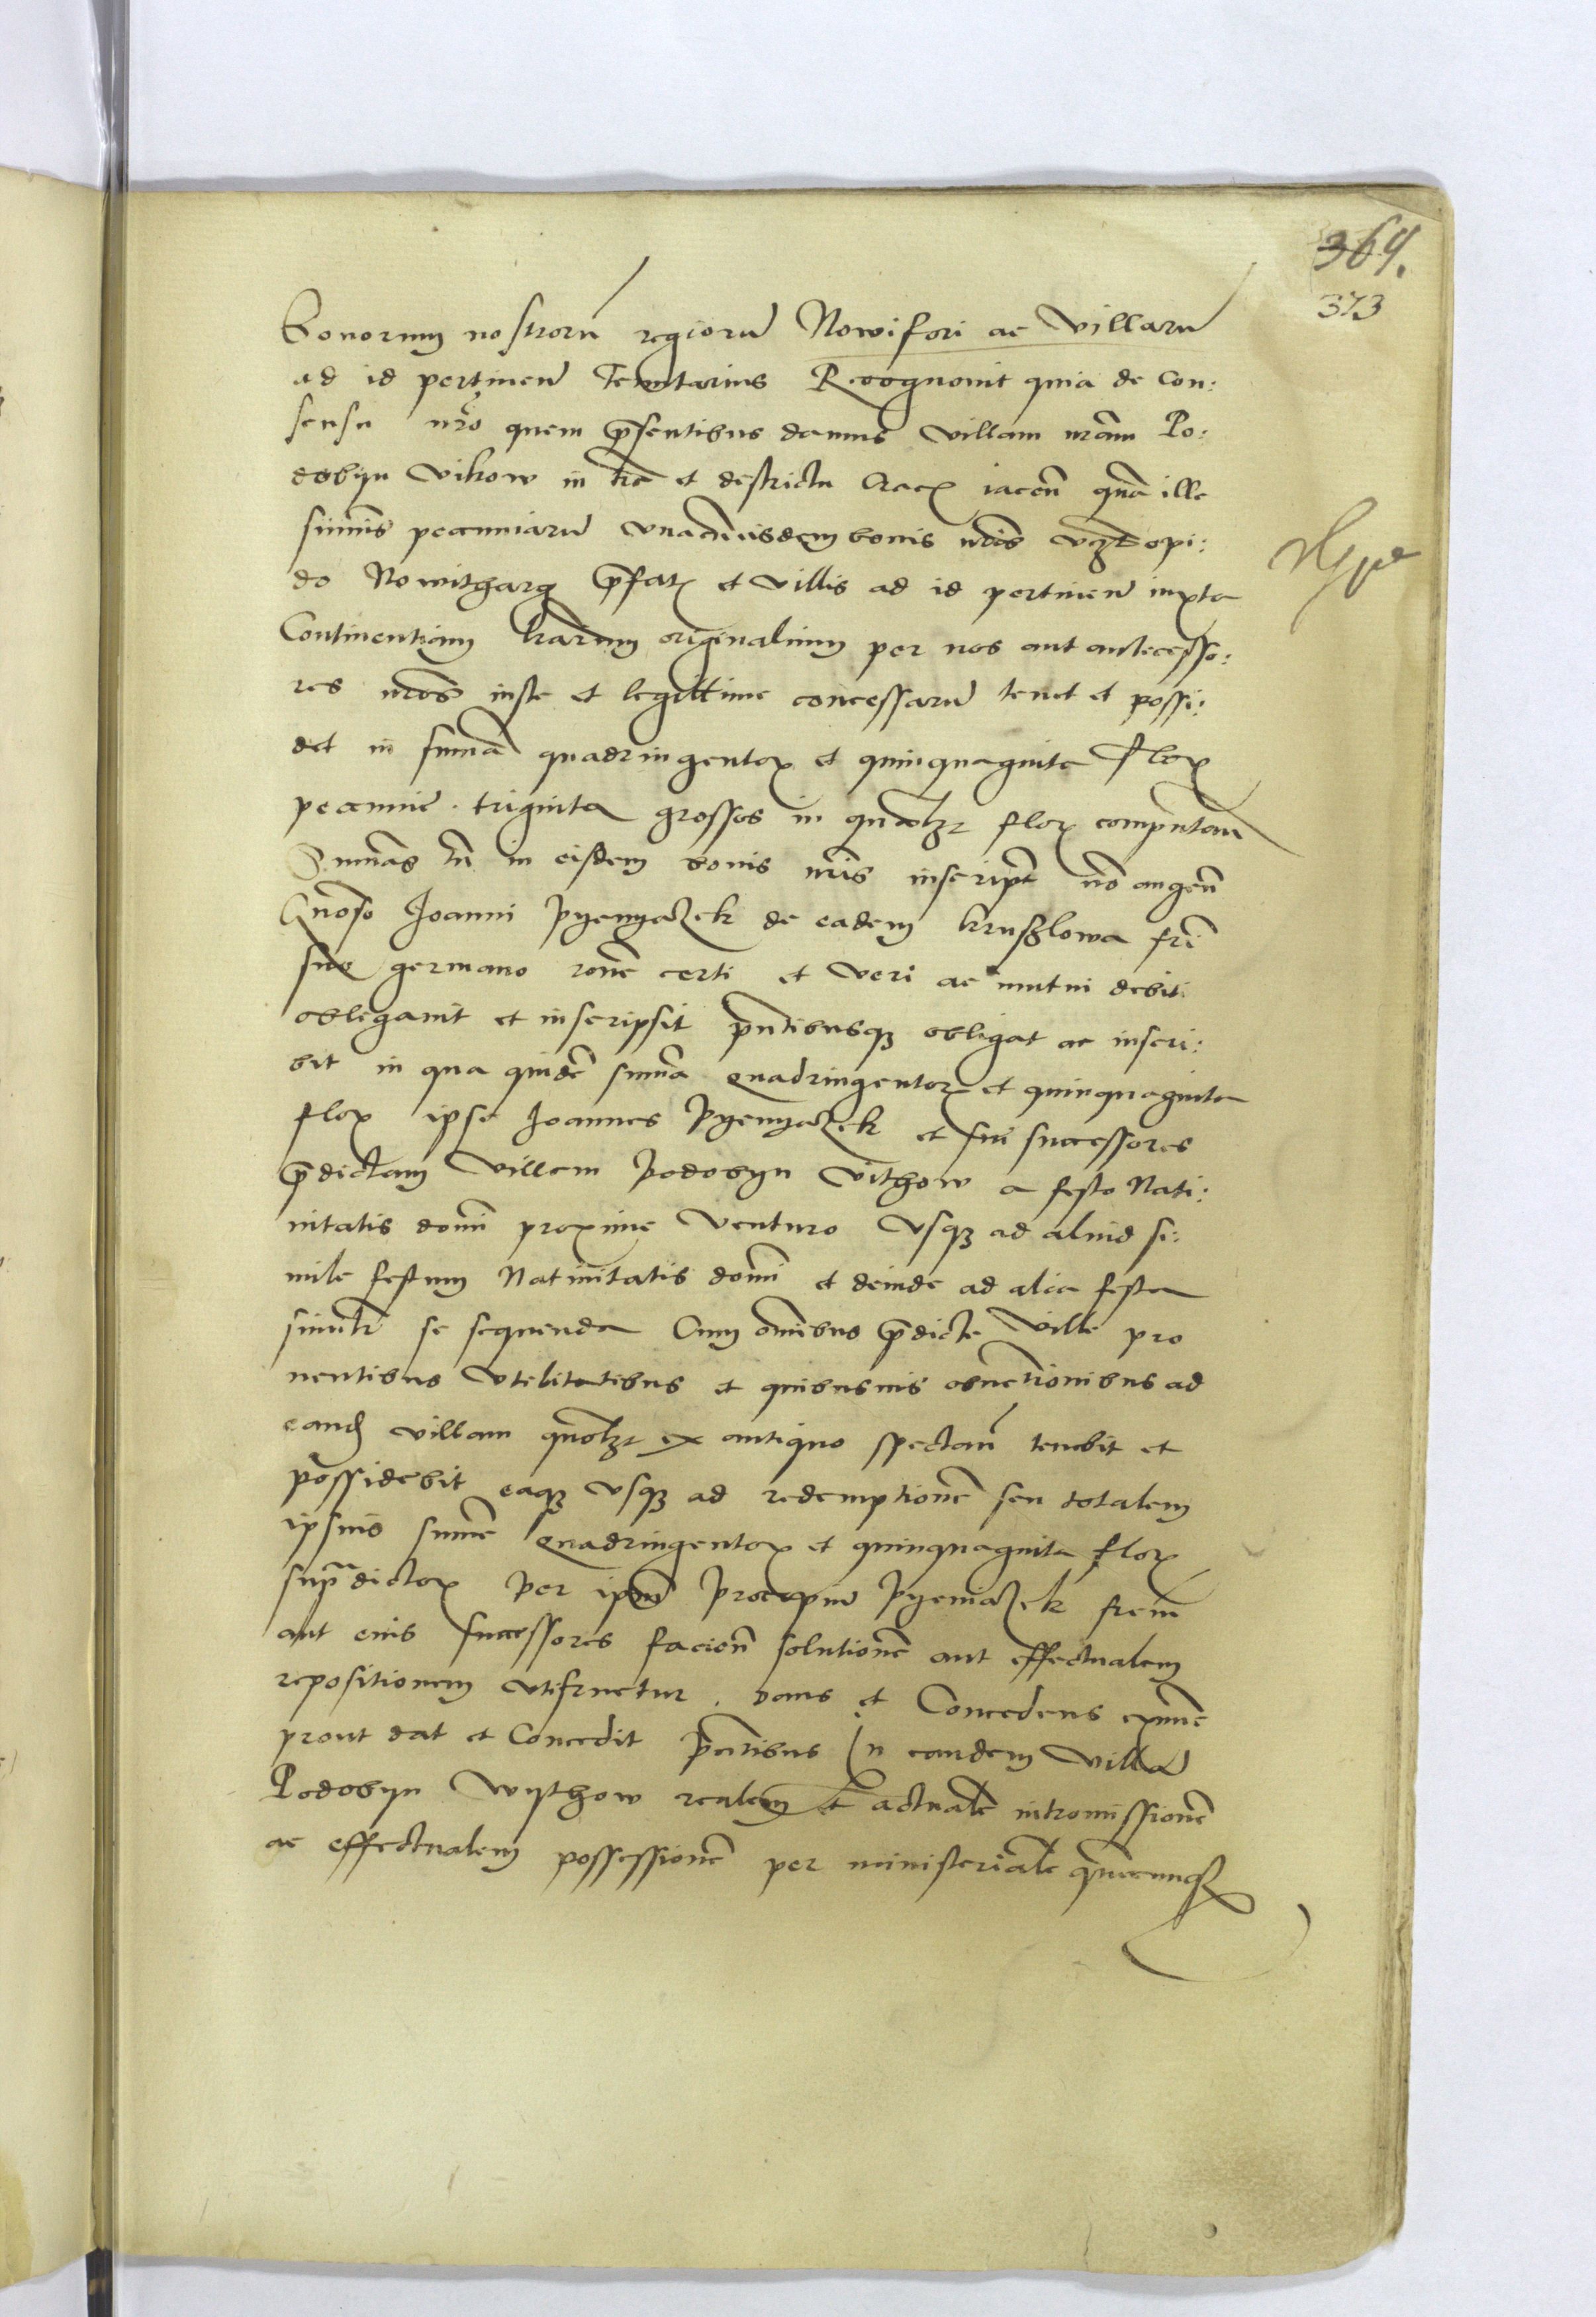 369.
373
Bonorum nostrorū regiorū Nowifori ac villarū
ad id pertinen̄ Tenutarius Recognovit quia de con:
sensu nr̄o quem p̄sentibus damus villam nr̄am Po:
dobyn Vikow in tr̄a et destrictu Crac̄ iacen̄ quā ille
sum̄is pecuniarū una cū eisdem bonis nr̄is vz opi:
do Nowithargk p̄fat̄ et villis ad id pertinen̄ iuxta
Continentiam lr̄arum originalium per nos aut antecesso:
res nr̄os iuste et legittime concessarū tenet et possi:
det in sum̄a quadringentor̄ et quinquaginta flor̄
pecunie triginta grossos in quēlzt flor̄ computan̄
Sum̄as tn̄ in eisdem bonis nr̄is inscript̄ nō augen̄
Gn̄oso Joanni Pyenyazek de eadem Kruzlowa frī
suo germano rōne certi et veri ac mutui debiti
obligavit et inscripsit pn̄tibusqz obligat ac inscri:
bit in qua quidē sum̄a quadringentor̄ et quinquaginta
flor̄ ipse Joannes Pyenyazek et sui successores
p̄dictam villam Podobyn Vithow a festo Nati:
vitatis domī proxime venturo Usqz ad aliud si:
mile festum Nativitatis domī et deinde ad alia festa
simlr̄ se sequenda Cum om̄ibus p̄dicte ville pro
ventibus utilitatibus et quibusvis obventionibus ad
eand̄ villam quōlzt ex antiquo spectan̄ tenebit et
possidebit eaqz usqz ad redemptionē seu totalem
ipsius sum̄e quadringentor̄ et quinquaginta flor̄
supradictor̄ per ipm̄ Procopiū Pyeniazek frēm
aut eius successores facien̄ solutionē aut effectualem
repositionem utifruetur. dans et Concedens exnūc
prout dat et Concedit pn̄tibus In eandem villā
Podobyn Wythow realem et actualē intromissionē
ac effectualem possessionē per ministerialē quēcunqz